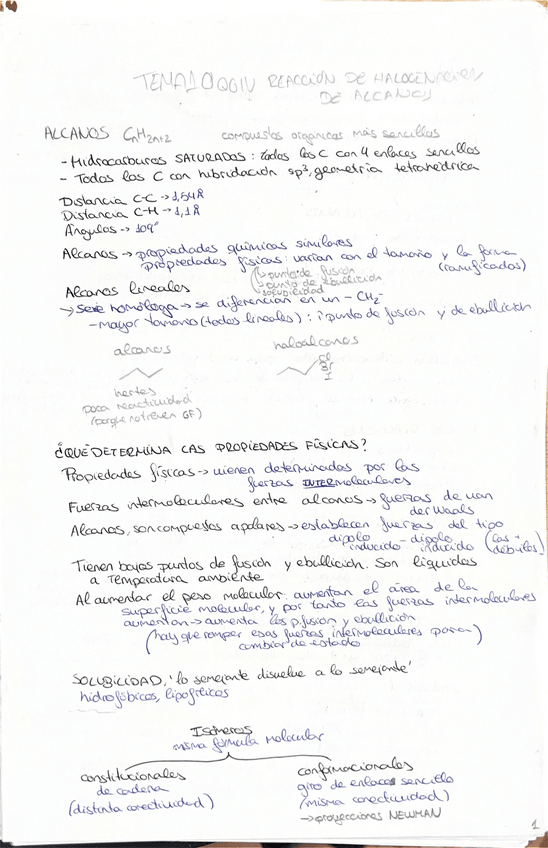 TEMA 10 QOIV REACCIÓN DE HALOGENACIÓN
DE ALCANOS
ALCANOS CnH2n+2 compuestos orgánicos más sencillos
- Hidrocarburos SATURADOS: todos los C con 4 enlaces sencillos
- Todos los C con hibridación sp3, geometría tetraédrica
Distancia C-C → 1,54Å
Distancia C-H → 1,1Å
Ángulos → 109°
Alcanos → propiedades químicas similares
propiedades físicas: varían con el tamaño y la forma
(ramificados)
↳ punto de fusión
↳ punto de ebullición
↳ solubilidad
Alcanos lineales
→ serie homóloga → se diferencian en un -CH2-
- mayor tamaño (todos lineales): ↑ punto de fusión y de ebullición
alcanos
haloalcanos
Cl
Br
I
inertes
poca reactividad
(porque no tienen GF)
¿QUÉ DETERMINA LAS PROPIEDADES FÍSICAS?
Propiedades físicas → vienen determinados por las
fuerzas INTERmoleculares
Fuerzas intermoleculares entre alcanos → fuerzas de van
der Waals
Alcanos, son compuestos apolares → establecen fuerzas del tipo
dipolo inducido - dipolo inducido (las + débiles)
Tienen bajos puntos de fusión y ebullición. Son líquidos
a temperatura ambiente
Al aumentar el peso molecular: aumentan el área de la
superficie molecular, y por tanto las fuerzas intermoleculares
aumentan → aumenta los p.fusión y ebullición
(hay que romper esas fuerzas intermoleculares para
cambiar de estado)
SOLUBILIDAD, 'lo semejante disuelve a lo semejante'
hidrofóbicos, lipofílicos
Isómeros
misma fórmula molecular
constitucionales
de cadena
(distinta conectividad)
conformacionales
giro de enlaces sencillo
(misma conectividad)
→ proyecciones NEWMAN
1